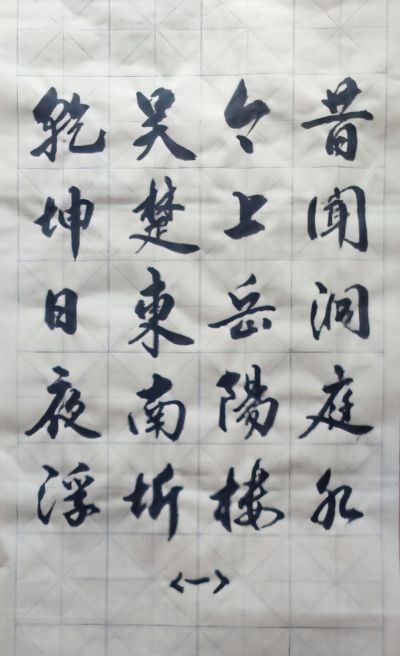 昔聞洞庭水
今上岳陽樓
吳楚東南坼
乾坤日夜浮
<一>